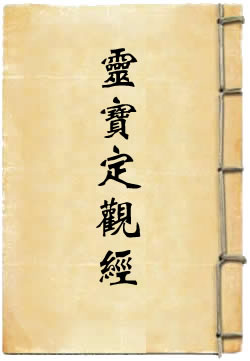 靈寶定觀經